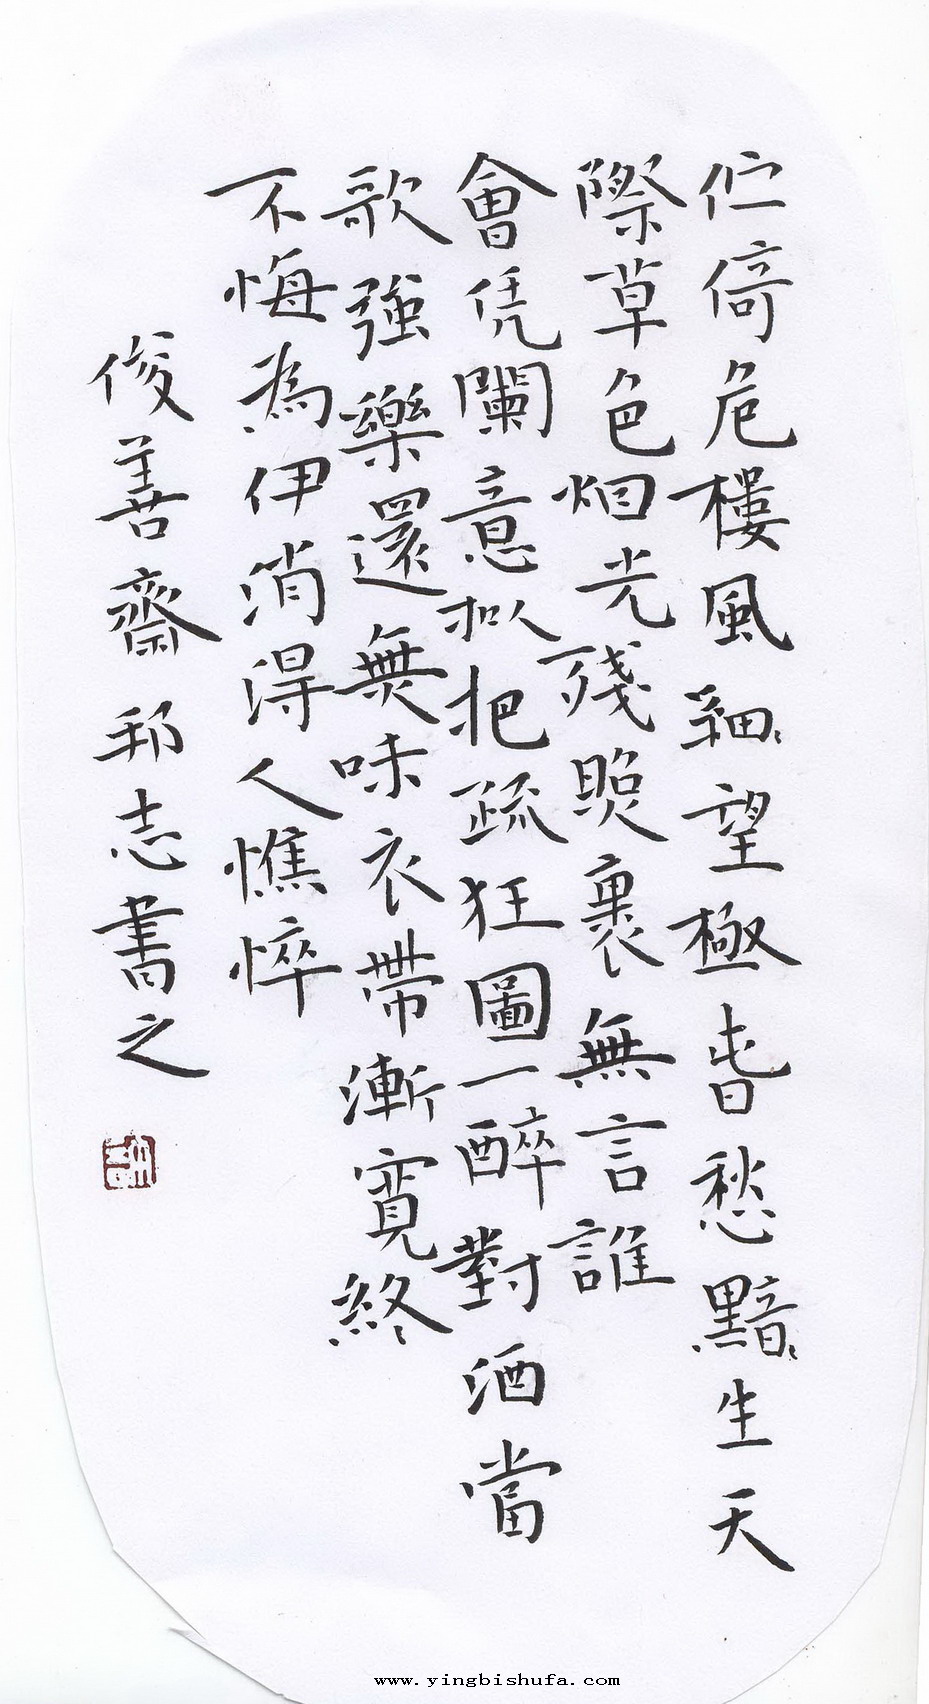 伫倚危樓風細〻望極旾愁黯〻生天
際草色烟光殘照裏無言誰
會凭闌意拟把疏狂圖一醉對酒當
歌強樂還無味衣帶漸寬終
不悔為伊消得人憔悴
俊善齋邦志書之
www.yingbishufa.com